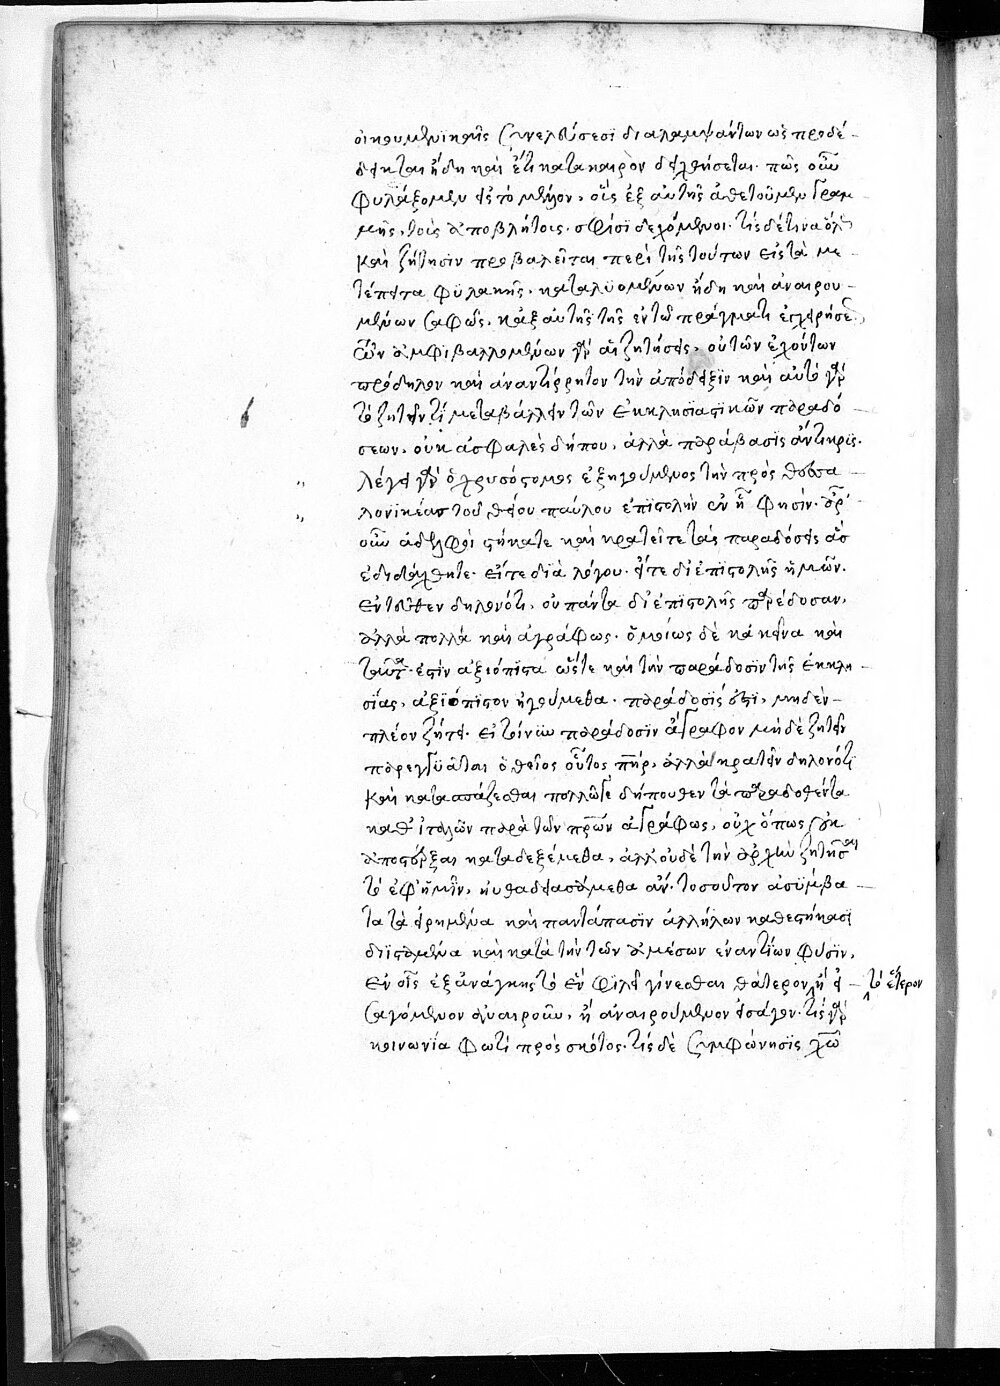 οἰκουμενικαῖς συνελεύσεσι διαλαμψάντων ὡς προδέ-
δεικται ἤδη καὶ ἔτι κατακαιρὸν δειχθήσεται. πῶς οὖν
φυλάξομεν εἰς τὸ μέλλον, οἷς ἐξ αὐτῆς ἀθετοῦμεν γραμ-
μῆς, τοὺς ἀποβλήτοις. σφίσι δεχόμενοι. τίς δέ τινα ὅλως
καὶ ζήτησιν προβαλεῖται περὶ τῆς τούτων εἰς τὰ με-
τέπειτα φυλακῆς, καταλυομένων ἤδη καὶ ἀναιρου-
μένων σαφῶς, κἀξ αὐτῆς τῆς ἐν τῷ πράγματι ἐγχειρήσεως,
ὧν ἀμφιβαλλομένων γὰρ αἱ ζητήσεις, οὐ τῶν ἐχόντων
πρόδηλον καὶ ἀναντίρρητον τὴν ἀπόδειξιν καὶ αὐτὸ γὰρ
τὸ ζητεῖν τί μεταβάλλειν τῶν ἐκκλησιαστικῶν παραδό-
σεων, οὐκ ἀσφαλὲς δήπου, ἀλλὰ παράβασις ἄντικρις.
λέγει γὰρ ὁ χρυσόστομος ἐξηγούμενος τὴν πρὸς θεσσα-
λονικέας τοῦ θείου παύλου ἐπιστολὴν ἐν ᾗ φησίν. ἄρ'
οὖν ἀδελφοὶ στήκατε καὶ κρατεῖτε τὰς παραδόσεις ἃς
ἐδιδάχθητε. εἴτε διὰ λόγου. εἴτε δι ἐπιστολῆς ἡμῶν.
ἐντεῦθεν δηλονότι, οὐ πάντα δι ἐπιστολῆς παρέδοσαν,
ἀλλὰ πολλὰ καὶ ἀγράφως. ὁμοίως δὲ κἀκεῖνα καὶ
ταῦτα ἐστὶν ἀξιόπιστα ὥστε καὶ τὴν παράδοσιν τῆς ἐκκλη-
σίας, ἀξιόπιστον ἡγούμεθα. παράδοσίς ἐστι, μηδὲν
πλέον ζήτει. εἰ τοίνυν παράδοσιν ἄγραφον μὴ δὲ ζητεῖν
παρεγγυᾶται ὁ θεῖος οὗτος πατήρ, ἀλλὰ κρατεῖν δηλονότι
καὶ κατασπάζεσθαι πολλῶ γε δήπουθεν τὰ παραδοθέντα
καθ' ἱστολῶν παρὰ τῶν πατέρων ἀγράφως, οὐχ ὅπως οὐκ
ἀποστέρξαι καταδεξέμεθα, ἀλλ' οὐδὲ τὴν ἀρχὴν ζητῆσαι
τὸ ἐφ' ἡμῖν, ηὐθαδιασάμεθα ἄν. τοσοῦτον ἀσύμβα-
τα τὰ εἰρημένα καὶ παντάπασιν ἀλλήλων καθεστήκασι
διϊστάμενα καὶ κατὰ τὴν τῶν ἀμέσων ἐναντίων φύσιν,
ἐν οἷς ἐξ ἀνάγκης τὸ ἓν φιλεῖ γίνεσθαι θάτερον, ἢ εἰ- τὸ ἕτερον
σαγόμενον ἀναιροῦν, ἢ ἀναιρούμενον εἰσάγον. τίς γὰρ
κοινωνία φωτὶ πρὸς σκότος. τίς δὲ συμφώνησις χῶ